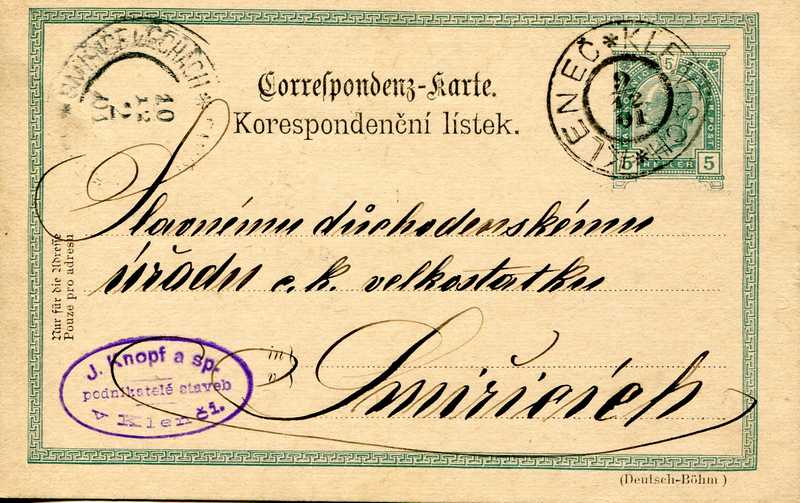 Correspondenz-Karte.
Korespondenční lístek.
KLENEČ * KLENTSCH *
2
12
01
5
5 HELLER 5
10
12
01
Slavnému důchodenskému
úřadu c. k. velkostatku
in
v
Smiřicích
Nur für die Adresse
Pouze pro adresu
J. Knopf a sp.
podnikatelé staveb
v Klenčí.
(Deutsch-Böhm)